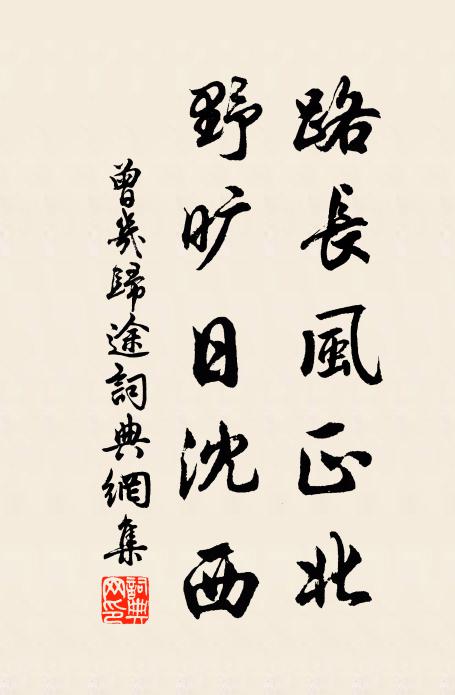 路長風正北
野旷日沈西
曾幾歸途詞典網集
詞典網印